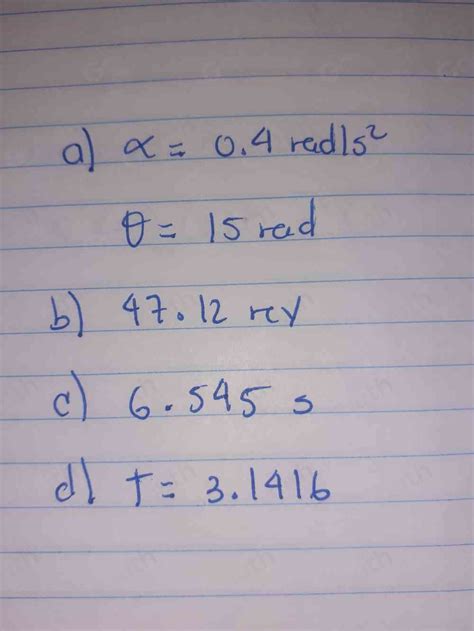 a) α = 0.4 rad/s²
θ = 15 rad
b) 47.12 rev
c) 6.545 s
d) t = 3.1416